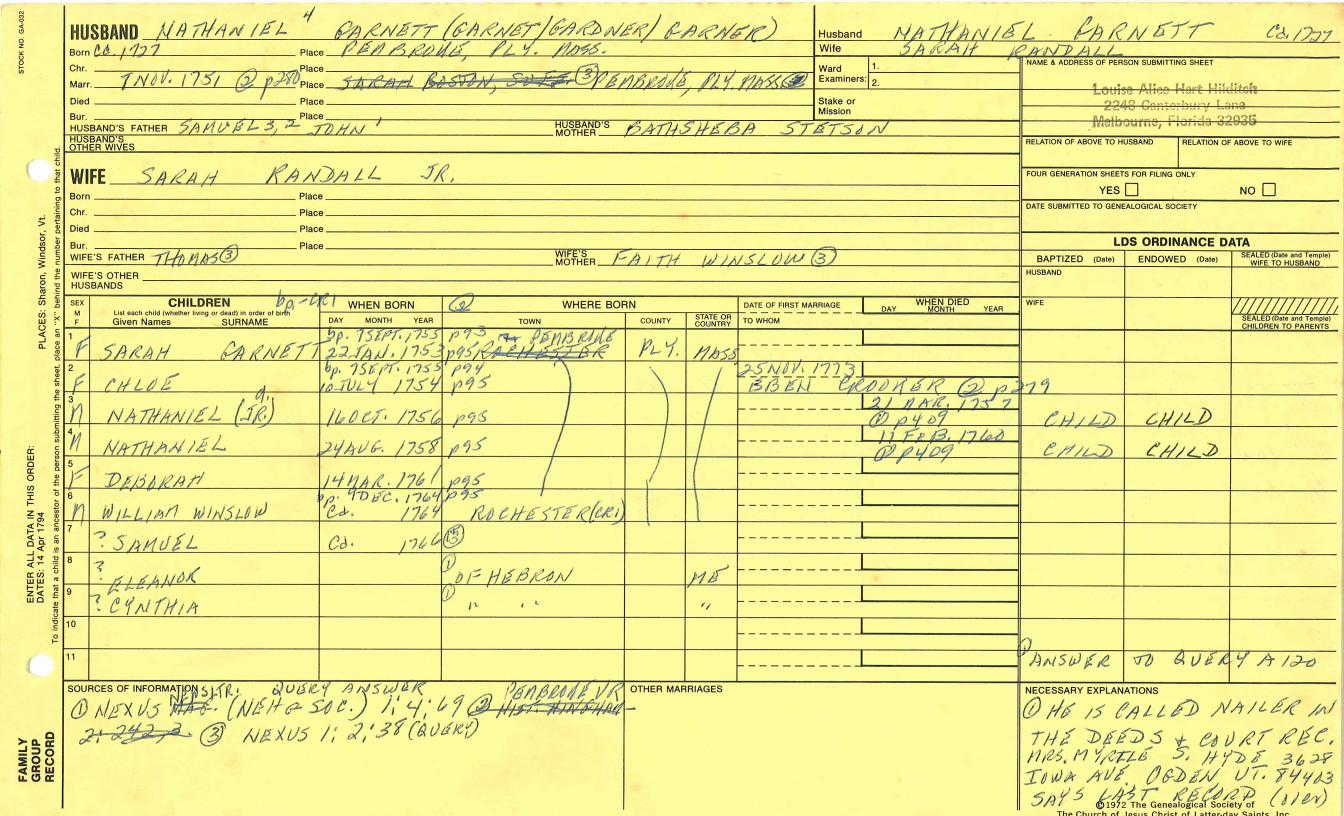 STOCK NO. GA-032
HUSBAND NATHANIEL 4 GARNETT (GARNET/GARDNER/GARNER)
Born Ca. 1727 Place PEMBROKE, PLY. MASS.
Chr. Place
Marr. 7 NOV. 1751 ② p280 Place SARAH BOSTON, SUFF. ③ PEMBROKE, PLY. MASS ②
Died Place
Bur. Place
HUSBAND'S FATHER SAMUEL 3, 2 JOHN 1 HUSBAND'S MOTHER BATHSHEBA STETSON
HUSBAND'S OTHER WIVES
Husband NATHANIEL GARNETT Ca. 1727
Wife SARAH RANDALL
Ward Examiners: 1.
2.
Stake or Mission
NAME & ADDRESS OF PERSON SUBMITTING SHEET
Louise Alice Hart Hilditch
2248 Canterbury Lane
Melbourne, Florida 32935
RELATION OF ABOVE TO HUSBAND RELATION OF ABOVE TO WIFE
FOUR GENERATION SHEETS FOR FILING ONLY
YES NO
DATE SUBMITTED TO GENEALOGICAL SOCIETY
WIFE SARAH RANDALL JR.
Born Place
Chr. Place
Died Place
Bur. Place
WIFE'S FATHER THOMAS ③ WIFE'S MOTHER FAITH WINSLOW ③
WIFE'S OTHER HUSBANDS
LDS ORDINANCE DATA
BAPTIZED (Date) ENDOWED (Date) SEALED (Date and Temple) WIFE TO HUSBAND
HUSBAND
WIFE
SEALED (Date and Temple) CHILDREN TO PARENTS
SEX M F
CHILDREN bp-CR1
List each child (whether living or dead) in order of birth
Given Names SURNAME
WHEN BORN ② WHERE BORN DATE OF FIRST MARRIAGE WHEN DIED
DAY MONTH YEAR TOWN COUNTY STATE OR COUNTRY TO WHOM DAY MONTH YEAR
1 bp. 7 SEPT. 1755 p93 PEMBROKE
F SARAH GARNETT 22 JAN. 1753 p95 ROCHESTER PLY. MASS
2 bp. 7 SEPT. 1755 p94 25 NOV. 1773
F CHLOE 10 JULY 1754 p95 EBEN CROOKER ② p279
3 d. 21 MAR. 1757
M NATHANIEL (JR.) 16 OCT. 1756 p95 ② p409 CHILD CHILD
4 11 FEB. 1760
M NATHANIEL 24 AUG. 1758 p95 ② p409 CHILD CHILD
5
F DEBORAH 14 MAR. 1761 p95
6 bp. 9 DEC. 1764 p95
M WILLIAM WINSLOW Ca. 1764 ROCHESTER (CR1)
7 ? SAMUEL Ca. 1766
8 ? ELEANOR ① OF HEBRON ME
9 ? CYNTHIA ① " " "
10
11 ① ANSWER TO QUERY A 120
SOURCES OF INFORMATION NEWSLTR. QUERY ANSWER PEMBROKE VR
① NEXUS MAG. (NEHG SOC.) 1; 4; 69 ② HIST. HINGHAM
2: 242,3 ③ NEXUS 1; 2; 38 (QUERY)
OTHER MARRIAGES
NECESSARY EXPLANATIONS
① HE IS CALLED NAILER IN
THE DEEDS & COURT REC.
MRS. MYRTLE S. HYDE 3628
IOWA AVE. OGDEN, UT. 84403
SAYS LAST RECORD (over)
©1972 The Genealogical Society of
The Church of Jesus Christ of Latter-day Saints, Inc.
PLACES: Sharon, Windsor, Vt.
ENTER ALL DATA IN THIS ORDER:
DATES: 14 Apr 1794
To indicate that a child is an ancestor of the person submitting the sheet, place an "X" behind the number pertaining to that child.
FAMILY GROUP RECORD